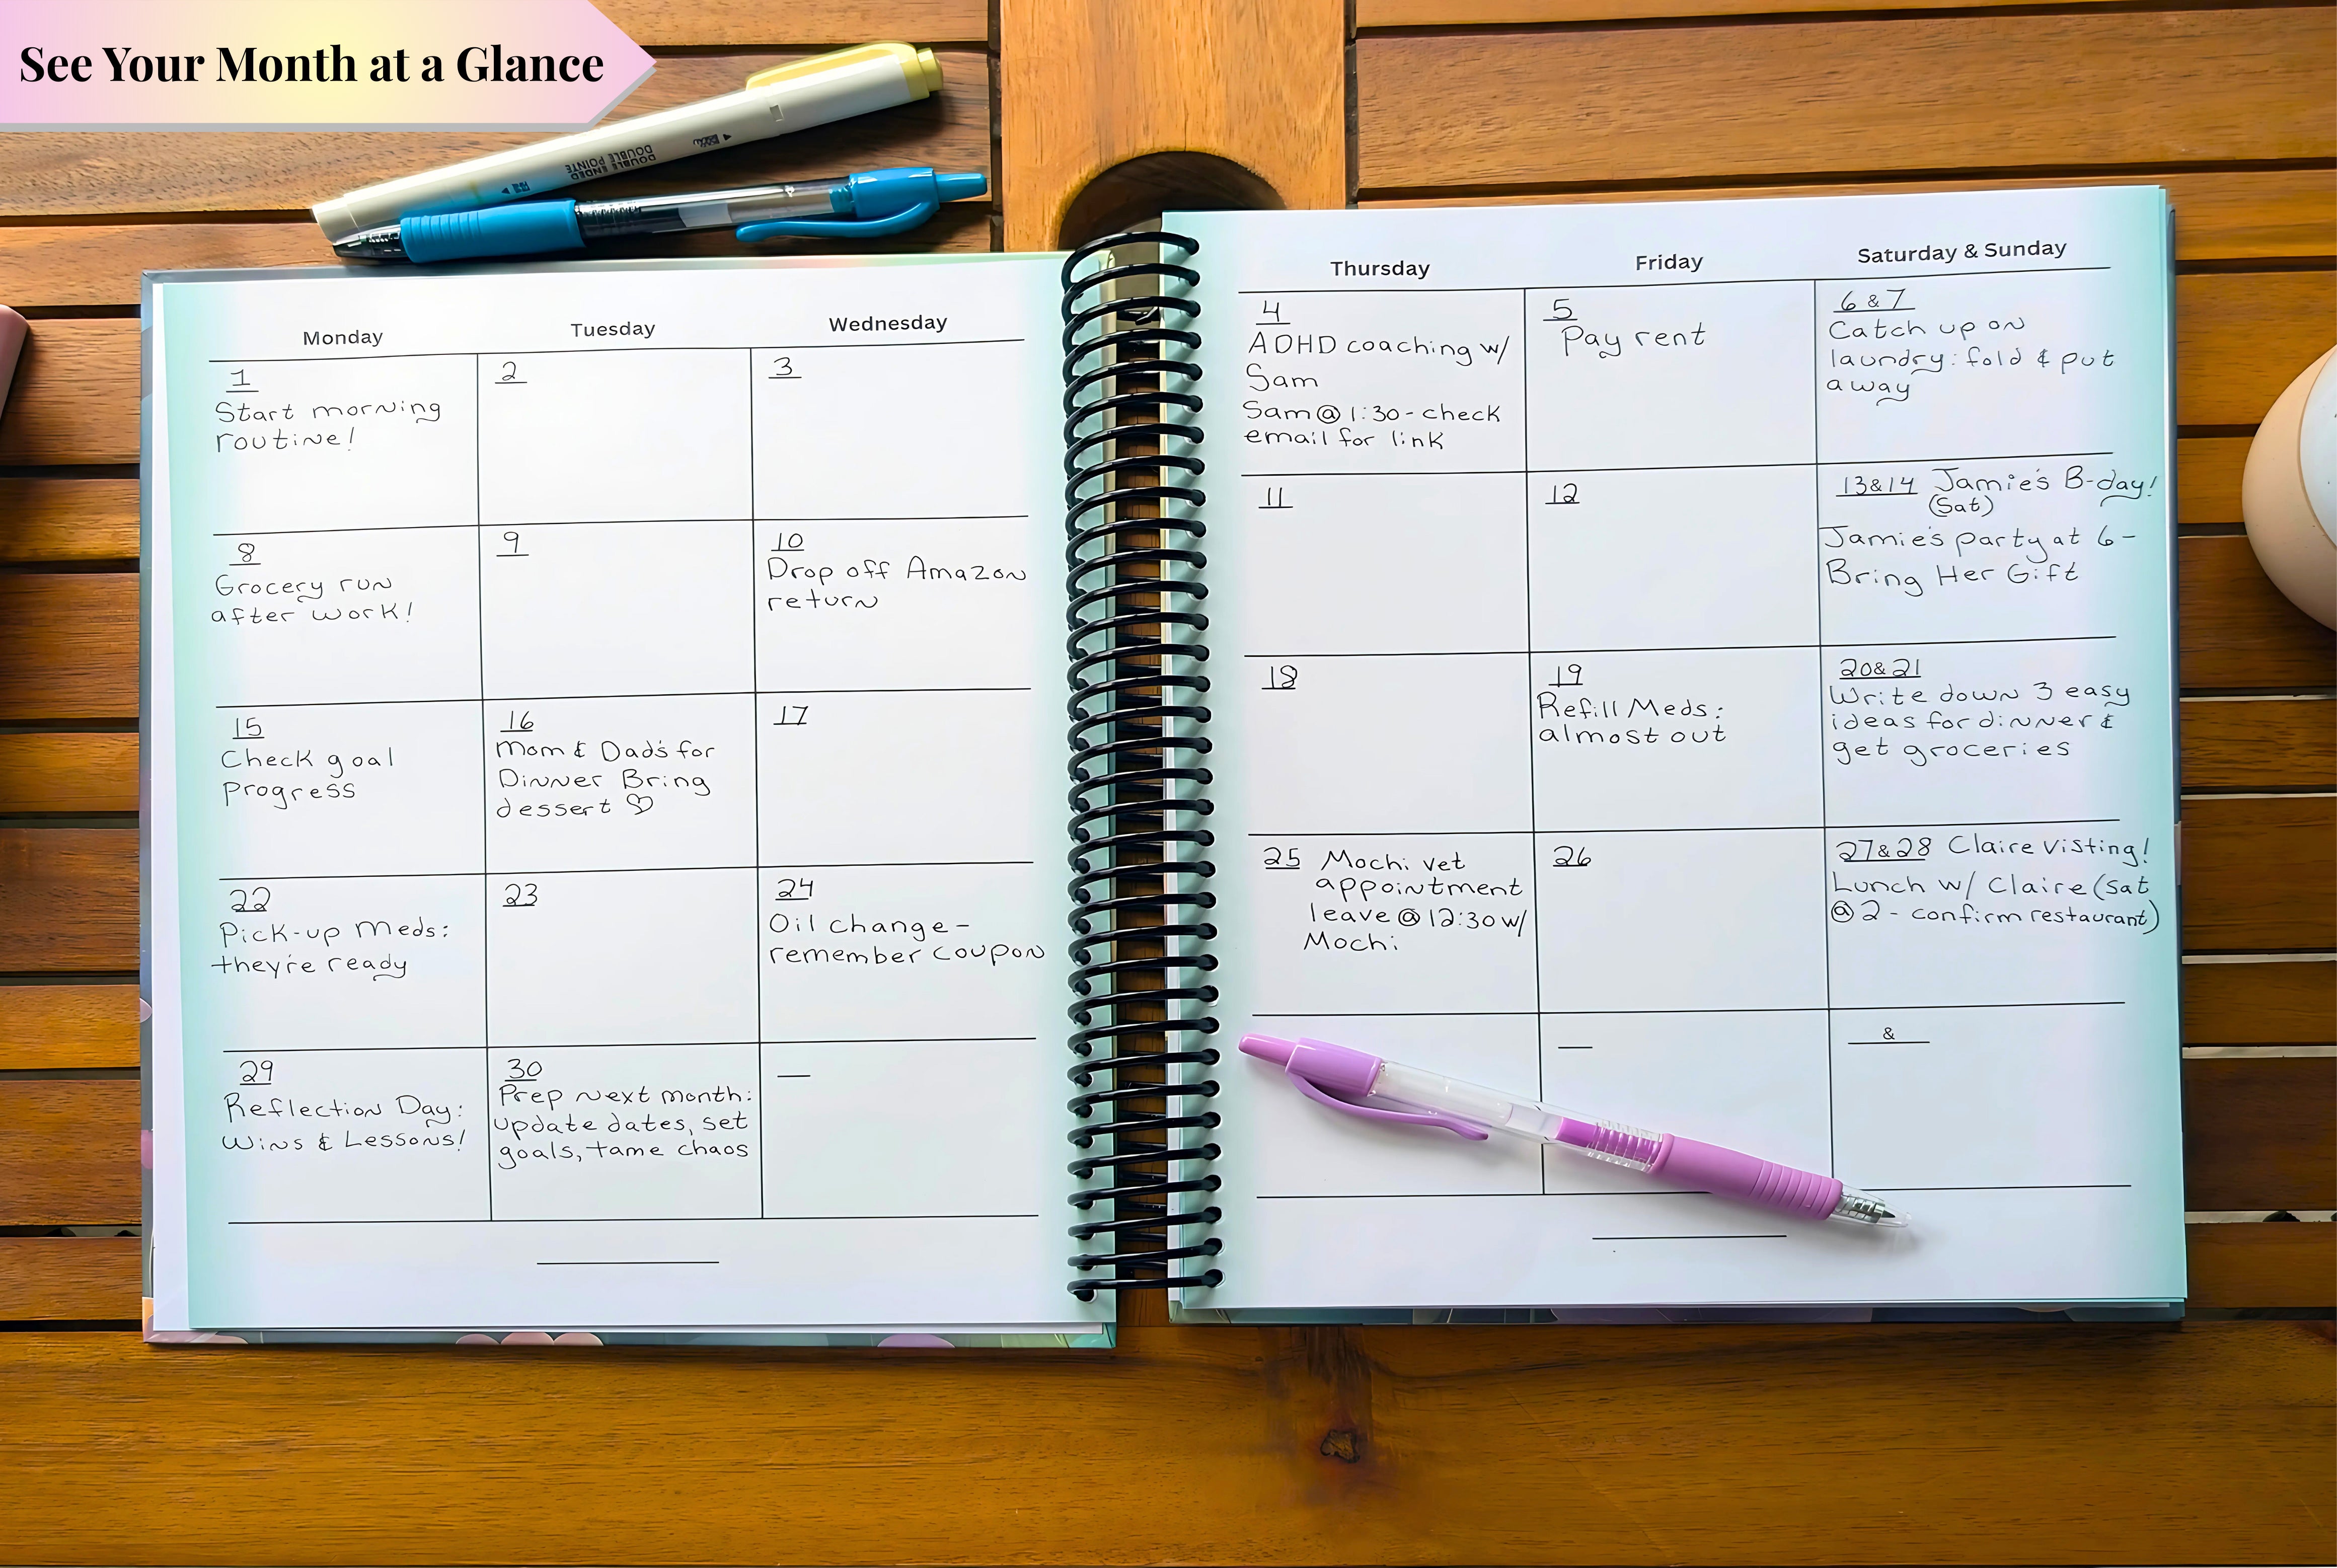 See Your Month at a Glance
DOUBLE ENDED
DOUBLE POINTE
Monday
Tuesday
Wednesday
1
Start morning
routine!
2
3
8
Grocery run
after work!
9
10
Drop off Amazon
return
15
Check goal
Progress
16
Mom & Dad's for
Dinner Bring
dessert ♡
17
22
Pick-up Meds:
they're ready
23
24
Oil change-
remember coupon
29
Reflection Day:
Wins & Lessons!
30
Prep next month:
update dates, set
goals, tame chaos
Thursday
Friday
Saturday & Sunday
4
ADHD coaching w/
Sam
Sam @ 1:30 - check
email for link
5
Pay rent
6 & 7
Catch up on
laundry: fold & put
away
11
12
13 & 14 Jamie's B-day!
(Sat)
Jamie's party at 6-
Bring Her Gift
18
19
Refill Meds:
almost out
20 & 21
Write down 3 easy
ideas for dinner &
get groceries
25 Mochi vet
appointment
leave @ 12:30 w/
Mochi
26
27 & 28 Claire visting!
Lunch w/ Claire (Sat
@ 2 - confirm restaurant)
&